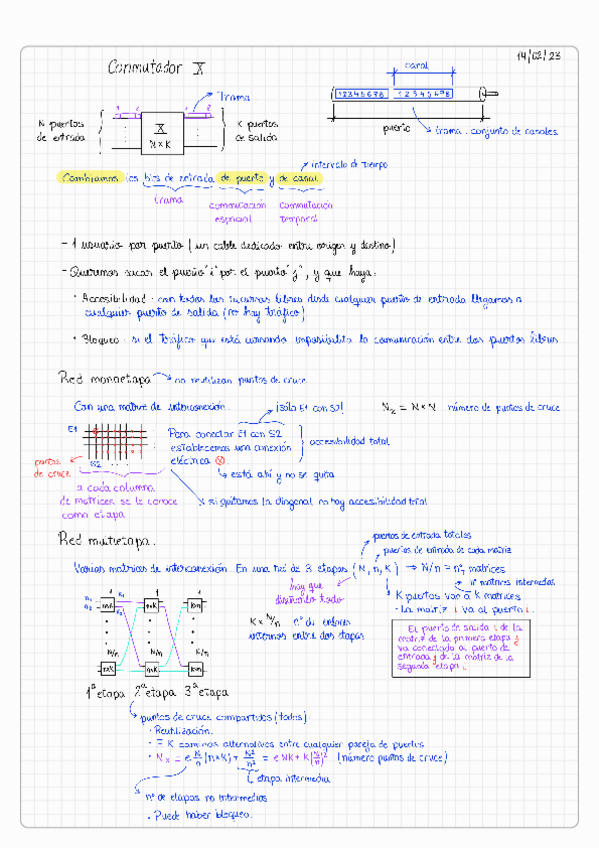 14/02/23
Conmutador X
canal
Trama
1 2 3 4 5 6 7 8 1 2 3 4 5 6 7 8
N puertos
de entrada
X
N×K
K puertos
de salida
puerto
trama: conjunto de canales
intervalo de tiempo
Cambiamos los bits de entrada de puerto y de canal
trama
conmutación
espacial
conmutación
temporal
- 1 usuario por puerto (un cable dedicado entre origen y destino)
- Queremos sacar el puerto "i" por el puerto "j", y que haya:
· Accesibilidad: con todos los recursos libres desde cualquier puerto de entrada llegamos a
cualquier puerto de salida (no hay tráfico)
· Bloqueo: si el tráfico que está cursando imposibilita la comunicación entre dos puertos libres
Red monoetapa → no reutilizan puntos de cruce
Con una matriz de interconexión.
¡sólo E1 con S2!
número de puntos de cruce
E1
S2
puntos
de cruce
Para conectar E1 con S2
establecemos una conexión
eléctrica ⊗
accesibilidad total
está ahí y no se quita
a cada columna
de matrices se le conoce
como etapa
si quitamos la diagonal no hay accesibilidad total
Red multietapa.
puertos de entrada totales
puertos de entrada de cada matriz
Varias matrices de interconexión. En una red de 3 etapas (N, n, K) → N/n = nº matrices
hay que
diseñarlo todo
nº matrices intermedias
K puertos van a K matrices
· La matriz i va al puerto i.
K × N/n nº de enlaces
internos entre dos etapas
El puerto de salida i de la
matriz de la primera etapa j
va conectado al puerto de
entrada j de la matriz de la
segunda etapa i.
1ª etapa 2ª etapa 3ª etapa
puntos de cruce compartidos (todos)
· Reutilización.
· K caminos alternativos entre cualquier pareja de puertos
(número puntos de cruce)
etapa intermedia
nº de etapas no intermedias
· Puede haber bloqueo.